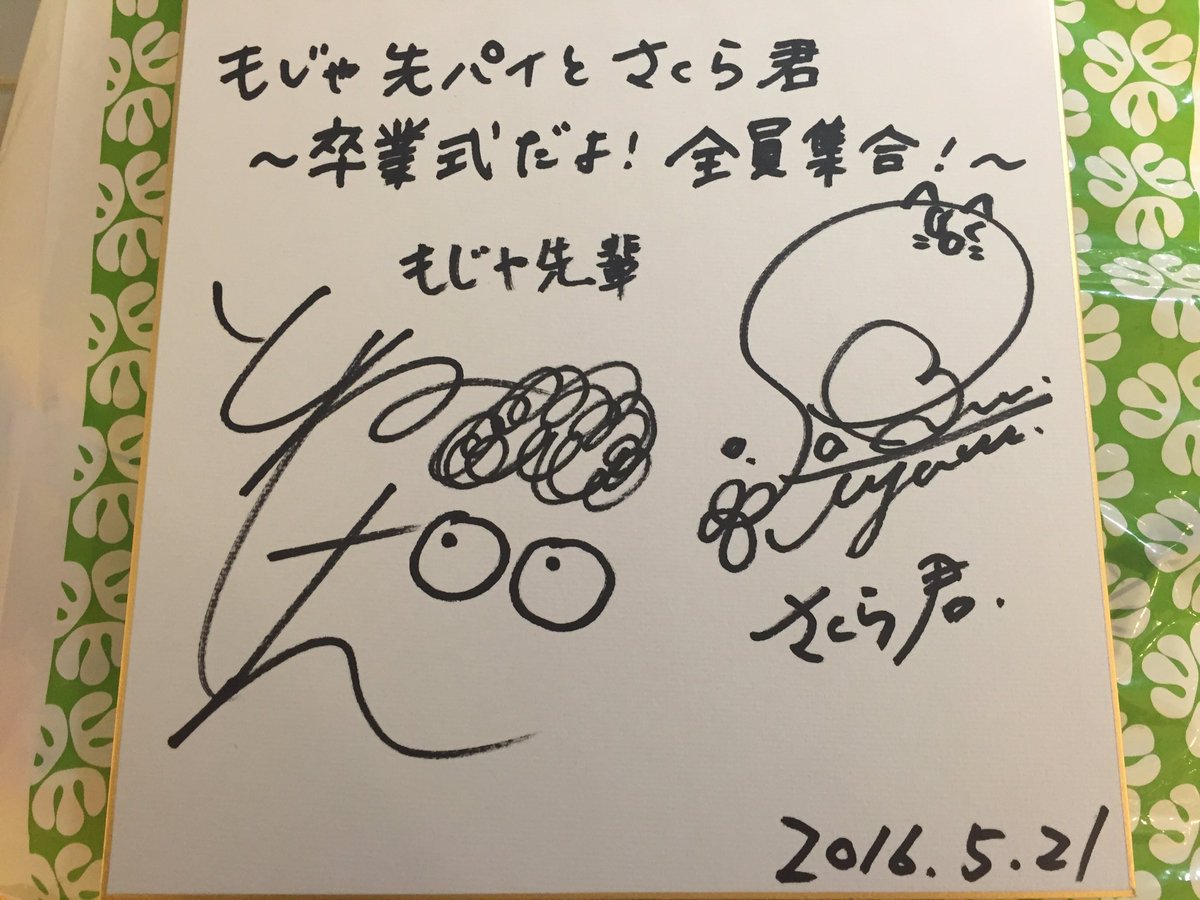 もじゃ先パイとさくら君
～卒業式だよ！全員集合！～
もじゃ先輩
さくら君.
2016.5.21